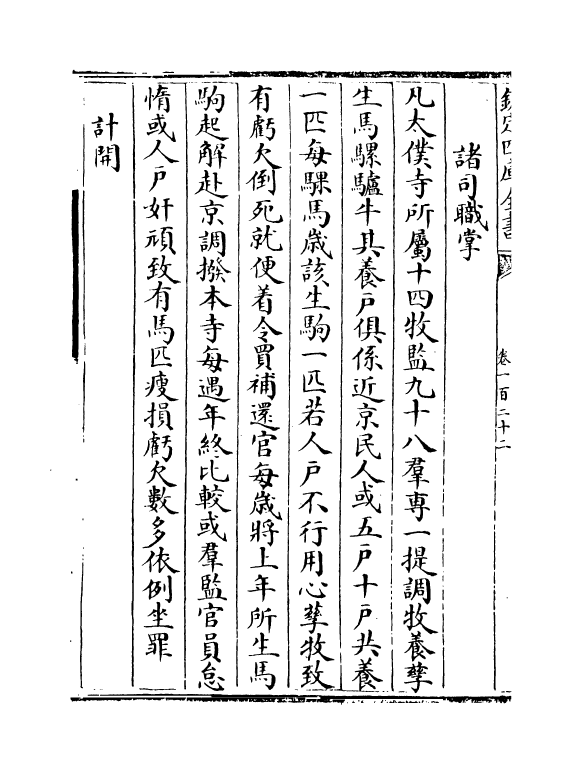 欽定四庫全書
卷一百二十二
諸司職掌
凡太僕寺所屬十四牧監九十八羣專一提調牧養孳
生馬騾驢牛其養戶俱係近京民人或五戶十戶共養
一匹每騍馬歲該生駒一匹若人戶不行用心孳牧致
有虧欠倒死就便着令買補還官每歲將上年所生馬
駒起解赴京調撥本寺每遇年終比較或羣監官員怠
惰或人戶奸頑致有馬匹瘦損虧欠數多依例坐罪
計開